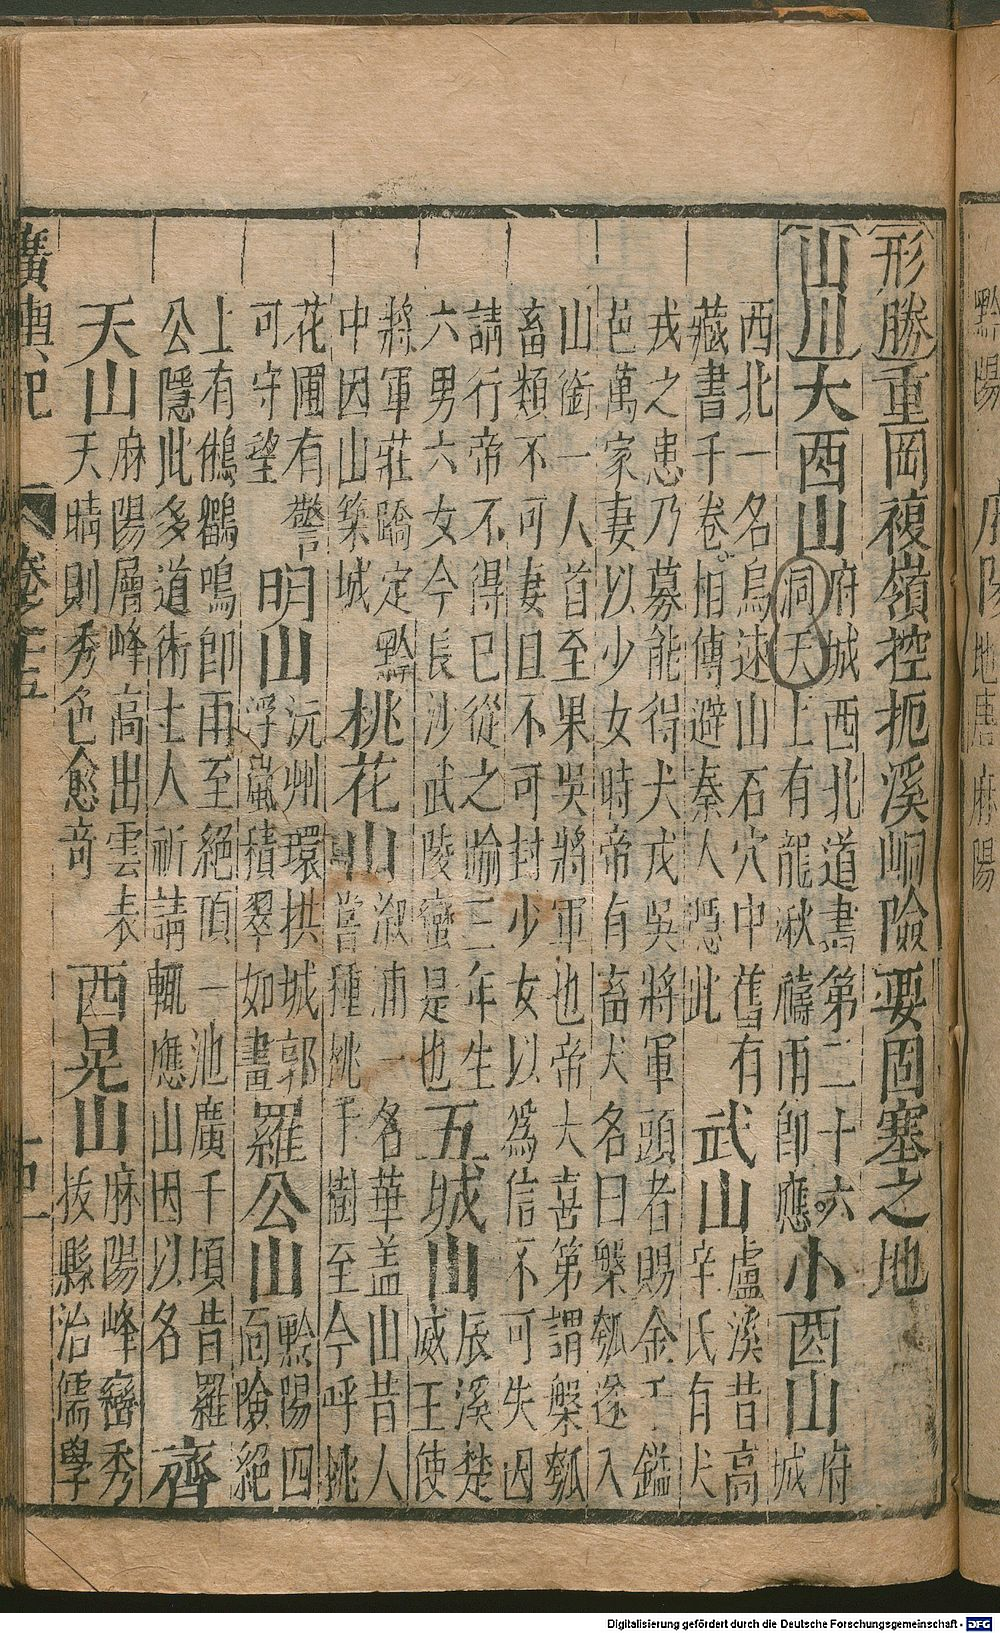 形勝 重岡複嶺控扼溪峒險要固塞之地
山川 大酉山 府城西北道書第二十六
洞天上有龍湫禱雨即應 小酉山 府
城
西北一名烏速山石穴中舊有
藏書千卷相傳避秦人隱此 武山 盧溪昔高
辛氏有犬
戎之患乃募能得犬戎吳將軍頭者賜金千鎰
邑萬家妻以少女時帝有畜犬名曰槃瓠遂入
山銜一人首至果吳將軍也帝大喜第謂槃瓠
畜類不可妻且不可封少女以為信不可失因
請行帝不得已從之喻三年生
六男六女今長沙武陵蠻是也 五城山 辰溪楚
威王使
將軍莊蹻定黔
中因山築城 桃花山 溆浦一名華蓋山昔人
嘗種桃千樹至今呼桃
花圃有警
可守望 明山 沅州環拱城郭
浮嵐積翠如畫 羅公山 黔陽四
面險絕
上有鵂鶹鳴即雨至絕頂一池廣千頃昔羅
公隱此多道術士人祈請輒應山因以名 齊
天山 麻陽層峰高出雲表
天晴則秀色愈奇 西晃山 麻陽峰巒秀
拔縣治儒學
廣輿記 卷之十五 十四
Digitalisierung gefördert durch die Deutsche Forschungsgemeinschaft - DFG